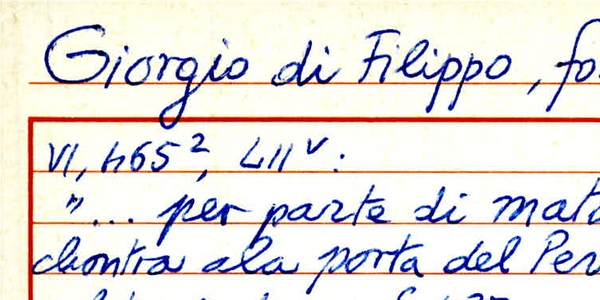 Giorgio di Filippo, fo
VI, 465², LII v:
"... per parte di mat
chontra ala porta del Per